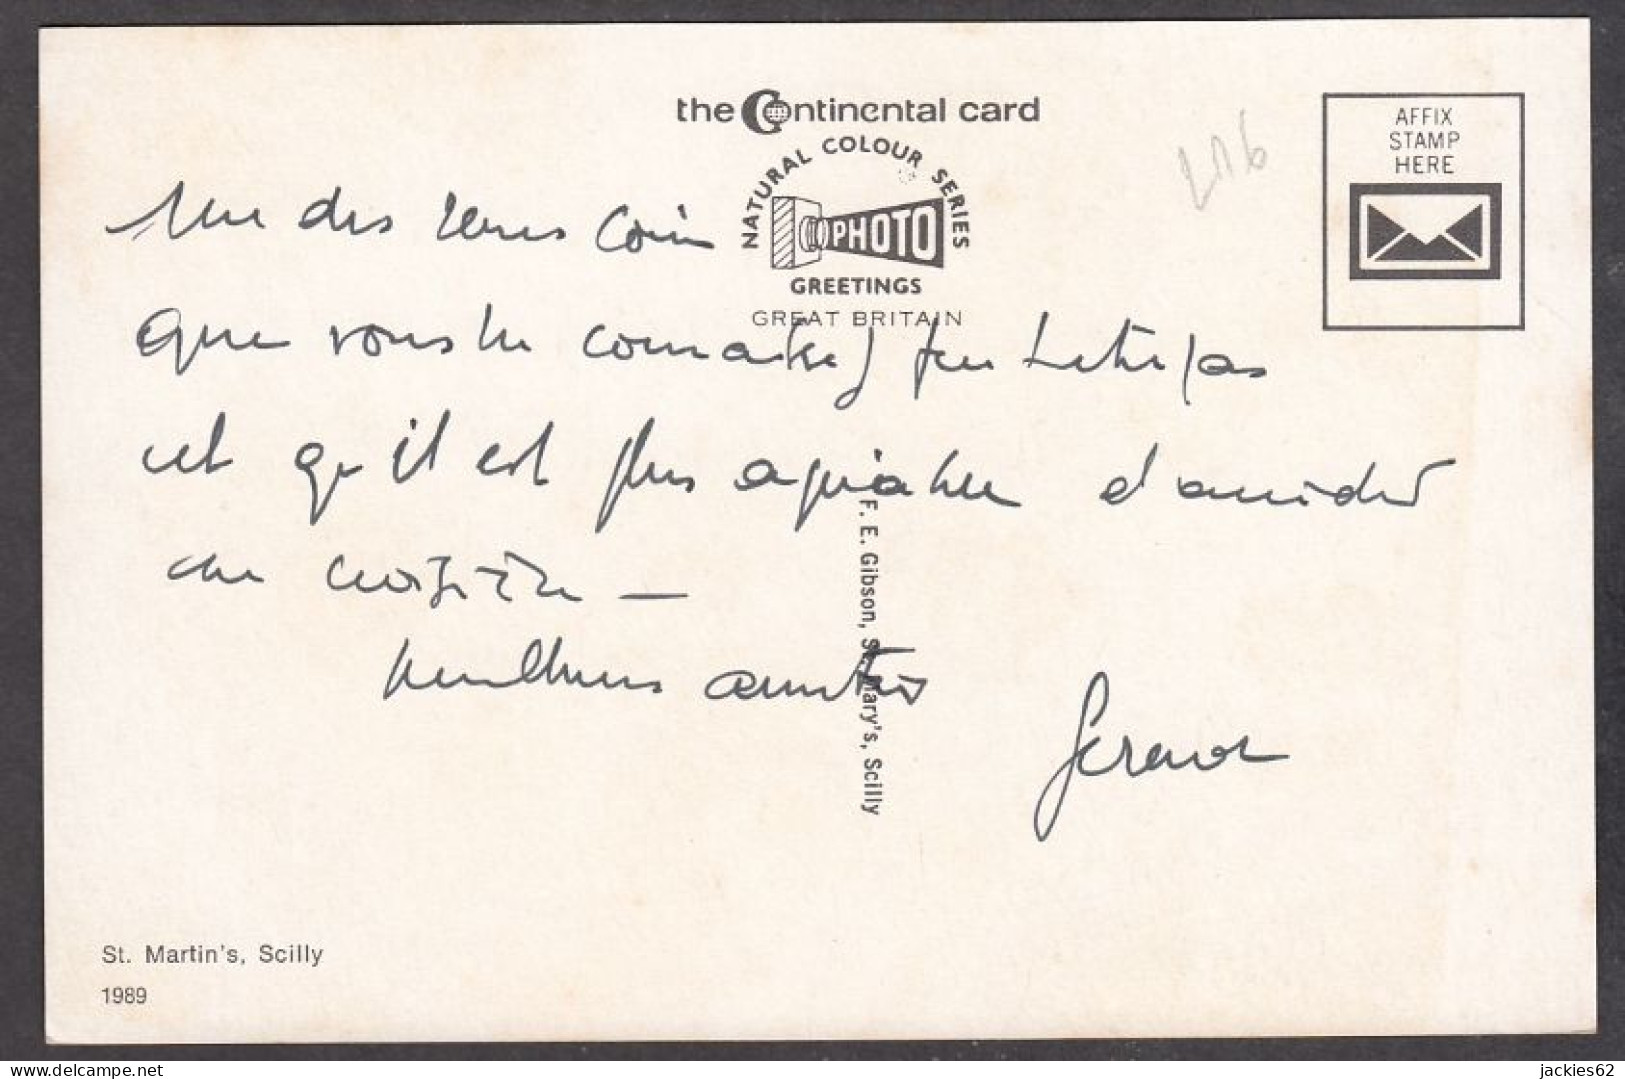 the Continental card
NATURAL COLOUR SERIES
PHOTO
GREETINGS
GREAT BRITAIN
AFFIX
STAMP
HERE
des coin
que vous ne connaissez peut être pas
et qu'il est plus agréable d'
en croisière —
meilleures amitiés
F. E. Gibson, St. Mary's, Scilly
St. Martin's, Scilly
1989
jackies62